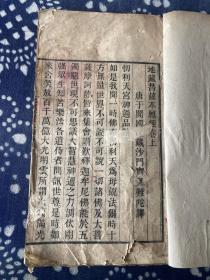 地藏菩薩本願經卷上
唐于闐國三藏沙門實叉難陀
忉利天宮神通品
如是我聞一時佛在忉利天為母說法爾時十
方無量世界不可說不可說一切諸佛及大菩
薩摩訶薩皆來集會讚歎釋迦牟尼佛能於五
濁惡世現不可思議智慧神通之力調伏剛
強眾生知苦樂法各遣侍者問訊世尊是時如
來含笑放百千萬億大光明雲所謂大圓滿光